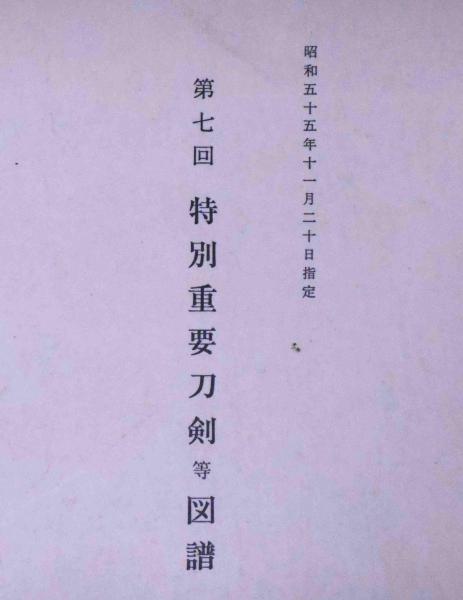 昭和五十五年十一月二十日指定
第七回 特別重要刀剣等図譜